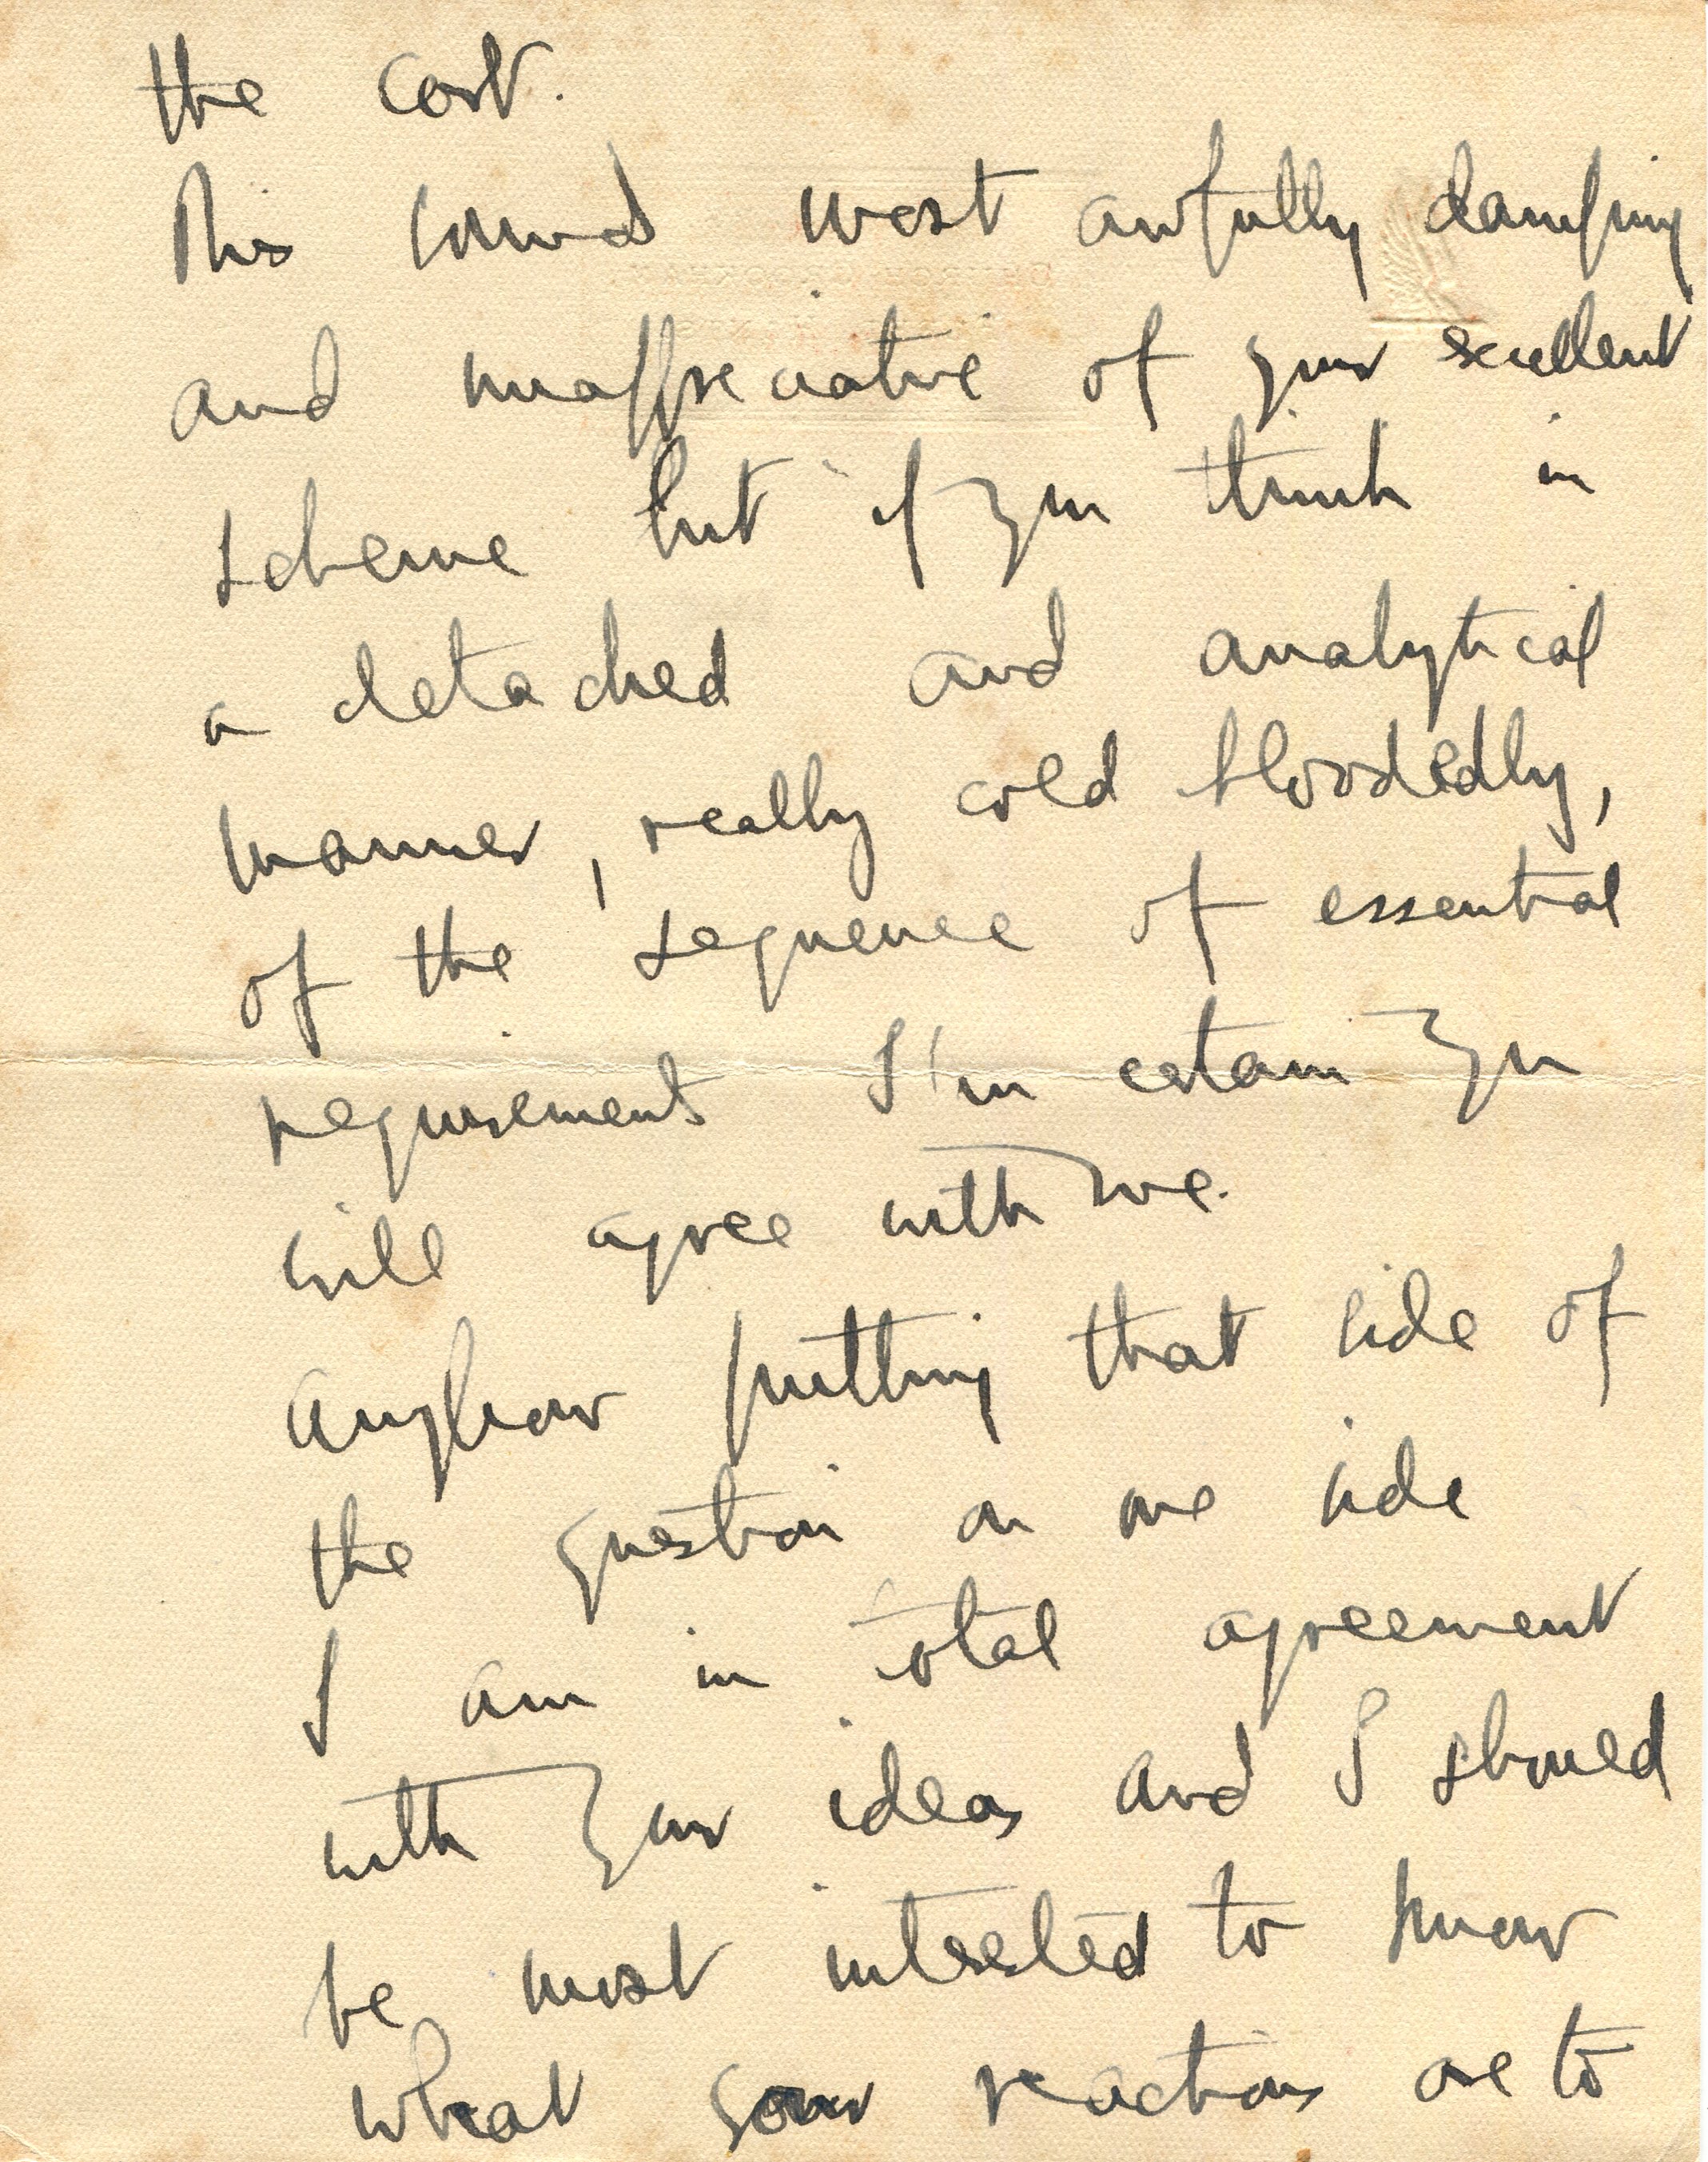 the cost.
This sounds most awfully damping
and unappreciative of your excellent
scheme but if you think in
a detached and analytical
manner, really cold bloodedly,
of the sequence of essential
requirements I'm certain you
will agree with me.
Anyhow putting that side of
the question on one side
I am in total agreement
with your ideas and I should
be most interested to know
what your reactions are to